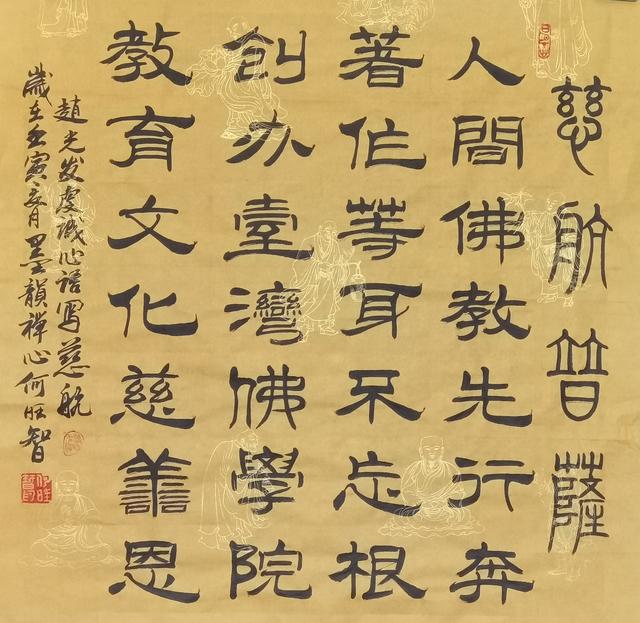 慈航普薩
人間佛教先行奔
著作等耳不忘根
創办臺灣佛學院
教育文化慈善恩
趙光发虔誠心語寫慈航
歲在壬寅春月墨韻禪心何旺智